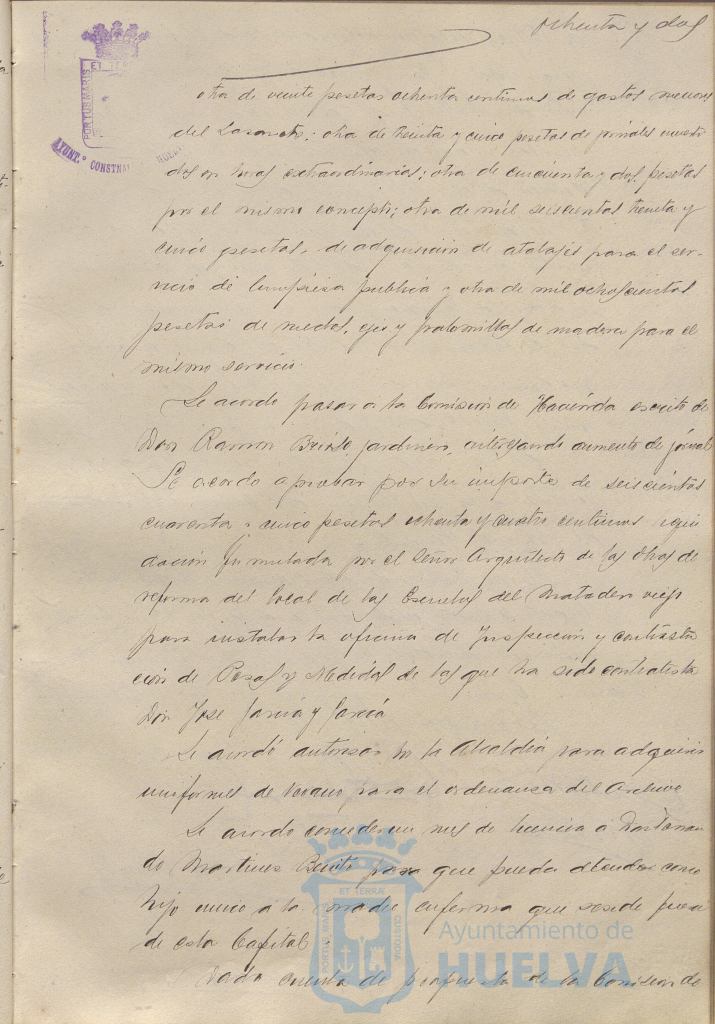 ochenta y dos
ET TERR
PORTUS MARIS
AYUNT.º CONSTNAL
HUEL
otra de veinte pesetas ochenta centimos de gastos menores
del Lazareto; otra de treinta y cinco pesetas de jornales
dos en horas extraordinarias; otra de cincuenta y dos pesetas
por el mismo concepto; otra de mil seiscientas treinta y
cinco pesetas, de adquisición de atalajes para el ser-
vicio de limpieza publica y otra de mil ochocientas
pesetas de ruedas, ejes y de madera para el
mismo servicio.
Se acordó pasar a la Comision de Hacienda escrito de
Don Ramon jardinero, interesando aumento de jornal
Se acordo aprobar por su importe de seiscientas
cuarenta y cinco pesetas ochenta y cuatro centimos liqui
dación formulada por el señor Arquitecto de las obras de
reforma del local de las Escuelas del Matadero viejo
para instalar la oficina de Inspección y contrasta
ción de Pesas y Medidas de las que ha sido contratista
Don Jose Garcia y Garcia
Se acordó autorizar a la Alcaldia para adquirir
uniformes de verano para el ordenanza del Archivo
Se acordo conceder un mes de licencia a Don Fernan
do Martinez Benito para que pueda atender como
hijo unico a la madre enferma que reside fuera
de esta Capital
Dada cuenta de propuesta de la Comision de
ET TERRÆ
PORTUS MARIS
CUSTODIA
Ayuntamiento de
HUELVA